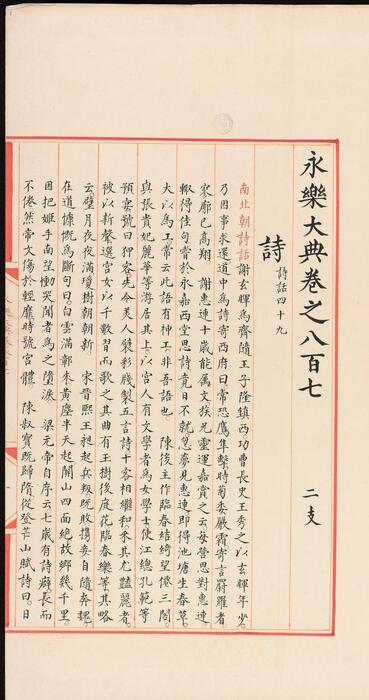 永樂大典卷之八百七 二支
詩 詩話四十九
南北朝詩話謝玄暉為齊隨王子隆鎮西功曹長史王秀之以玄暉年少
乃因事求還道中為詩寄西府曰常恐鷹隼擊時菊委嚴霜寄言罻羅者
寥廓已高翔 謝惠連十歲能屬文族兄靈運嘉賞之云每營思對惠連
輙得佳句嘗於永嘉西堂思詩竟日不就忽夢見惠連即得池塘生春草
大以為工常云此語有神工非吾語也 陳後主作臨春結綺望僊三閣
與張貴妃麗華等游居其上以宮人有文學者為女學士使江總孔範等
預宴號曰狎客先令美人襞彩牋製五言詩十客相繼和采其尤豔麗者
被以新聲選宮女以千數習而歌之其曲有玉樹後庭花臨春樂等其略
云璧月夜夜滿瓊樹朝朝新 宋晉熙王昶起兵叛既敗携妾自隨奔魏
在道慷慨為斷句曰白雲滿鄣来黃塵半天起關山四面絶故鄉幾千里
因把姬手南望慟哭聞者為之墮淚 梁元帝自序云七歲有詩癖長而
不倦然帝文傷於輕靡時號宮體 陳叔寶既歸隋從登芒山賦詩曰日